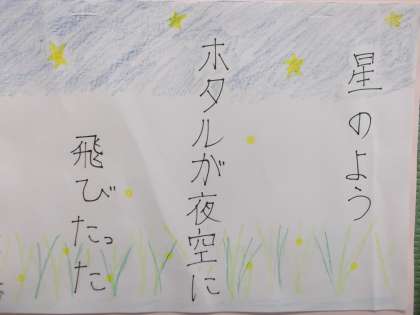 星のよう
ホタルが夜空に
飛びたった